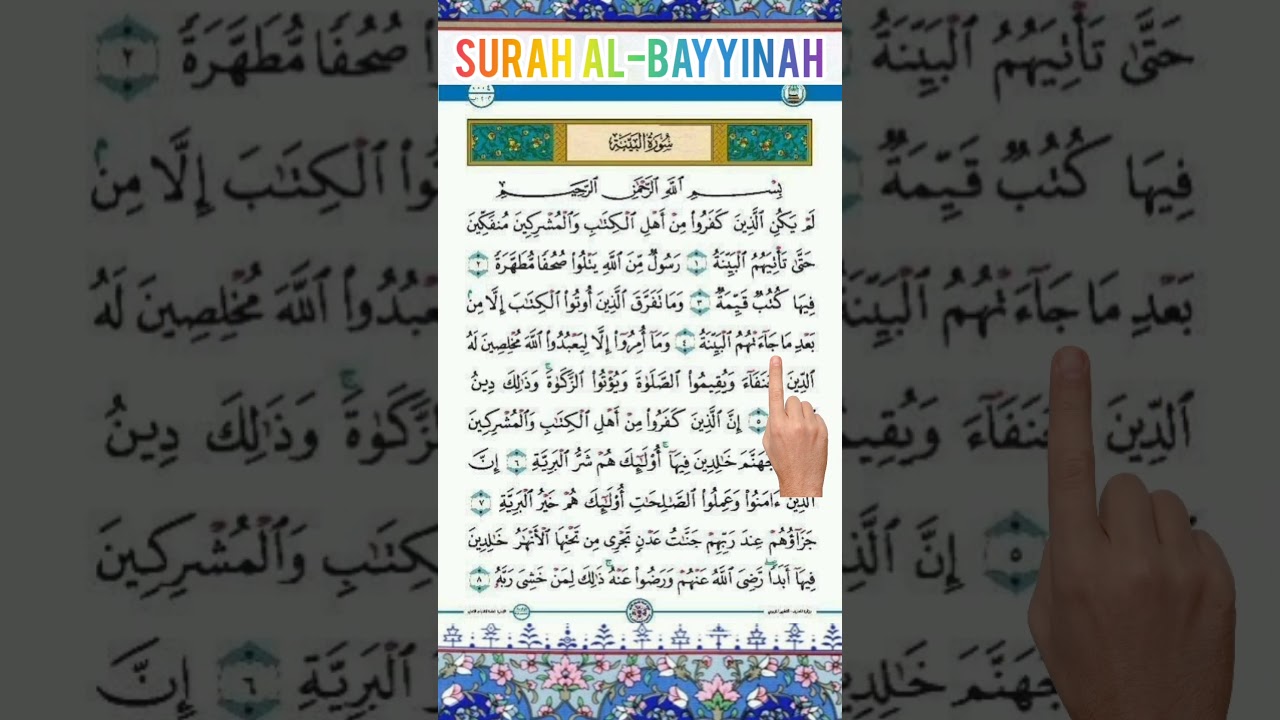 SURAH AL-BAYYINAH
سُورَةُ الْبَيِّنَةِ
بِسْمِ اللَّهِ الرَّحْمَٰنِ الرَّحِيمِ
لَمْ يَكُنِ الَّذِينَ كَفَرُوا۟ مِنْ أَهْلِ الْكِتَٰبِ وَالْمُشْرِكِينَ مُنفَكِّينَ
حَتَّىٰ تَأْتِيَهُمُ الْبَيِّنَةُ ١ رَسُولٌ مِّنَ اللَّهِ يَتْلُوا۟ صُحُفًا مُّطَهَّرَةً ٢
فِيهَا كُتُبٌ قَيِّمَةٌ ٣ وَمَا تَفَرَّقَ الَّذِينَ أُوتُوا۟ الْكِتَٰبَ إِلَّا مِنۢ
بَعْدِ مَا جَآءَتْهُمُ الْبَيِّنَةُ ٤ وَمَآ أُمِرُوٓا۟ إِلَّا لِيَعْبُدُوا۟ اللَّهَ مُخْلِصِينَ لَهُ
الدِّينَ حُنَفَآءَ وَيُقِيمُوا۟ الصَّلَوٰةَ وَيُؤْتُوا۟ الزَّكَوٰةَ ۚ وَذَٰلِكَ دِينُ
٥ إِنَّ الَّذِينَ كَفَرُوا۟ مِنْ أَهْلِ الْكِتَٰبِ وَالْمُشْرِكِينَ
جَهَنَّمَ خَٰلِدِينَ فِيهَآ ۚ أُو۟لَٰٓئِكَ هُمْ شَرُّ الْبَرِيَّةِ ٦ إِنَّ
الَّذِينَ ءَامَنُوا۟ وَعَمِلُوا۟ الصَّٰلِحَٰتِ أُو۟لَٰٓئِكَ هُمْ خَيْرُ الْبَرِيَّةِ ٧
جَزَآؤُهُمْ عِندَ رَبِّهِمْ جَنَّٰتُ عَدْنٍ تَجْرِى مِن تَحْتِهَا الْأَنْهَٰرُ خَٰلِدِينَ
فِيهَآ أَبَدًا ۖ رَّضِىَ اللَّهُ عَنْهُمْ وَرَضُوا۟ عَنْهُ ۚ ذَٰلِكَ لِمَنْ خَشِىَ رَبَّهُۥ ٨